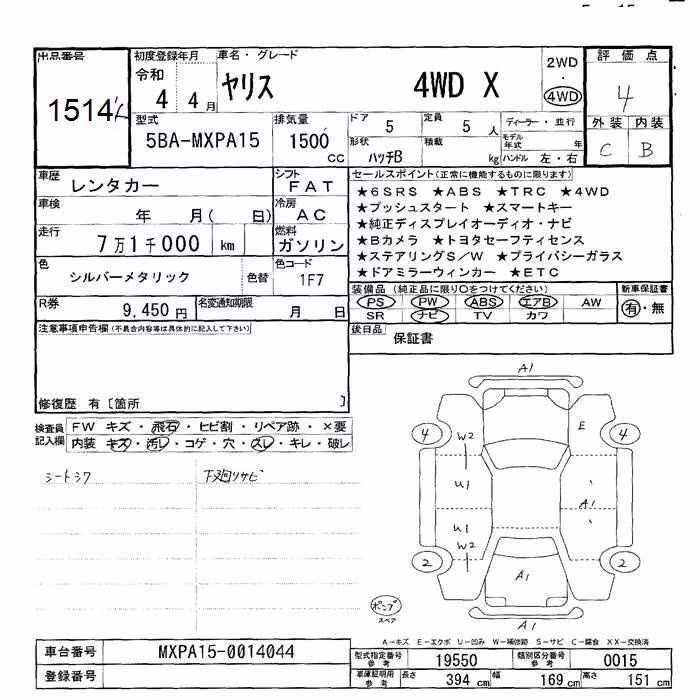 出品番号 初度登録年月 車名・グレード 2WD ・ 4WD 評価点
1514 令和 4 4月 ヤリス 4WD X 4
型式 5BA-MXPA15 排気量 1500 cc
ドア 5 定員 5 人 ディーラー・並行 外装 内装
形状 ハッチB 積載 kg モデル年式 年 ハンドル 左・右 C B
車歴 レンタカー シフト FAT
車検 年 月( 日) 冷房 AC
走行 7万1千000 km 燃料 ガソリン
色 シルバーメタリック 色替 色コード 1F7
R券 9,450円 名変通知期限 月 日
セールスポイント(正常に機能するものに限ります)
★6SRS ★ABS ★TRC ★4WD
★プッシュスタート ★スマートキー
★純正ディスプレイオーディオ・ナビ
★Bカメラ ★トヨタセーフティセンス
★ステアリングS/W ★プライバシーガラス
★ドアミラーウィンカー ★ETC
装備品(純正品に限り○をつけてください) 新車保証書
PS PW ABS エアB AW 有・無
SR ナビ TV カワ
後日品 保証書
注意事項申告欄(不具合内容等は具体的に記入して下さい)
修復歴 有〔箇所 〕
検査員記入欄 FW キズ・飛石・ヒビ割・リペア跡・×要
内装 キズ・汚レ・コゲ・穴・スレ・キレ・破レ
シートシワ 下廻リサビ
A1
4 W2 E 4
U1 A1
U1
W2
2 A1 2
A1
ポンプ
スペア
A-キズ E-エクボ U-凹み W-補修跡 S-サビ C-腐食 XX-交換済
車台番号 MXPA15-0014044
登録番号
型式指定番号 参考 19550 類別区分番号 参考 0015
車庫証明用 参考 長さ 394 cm 幅 169 cm 高さ 151 cm